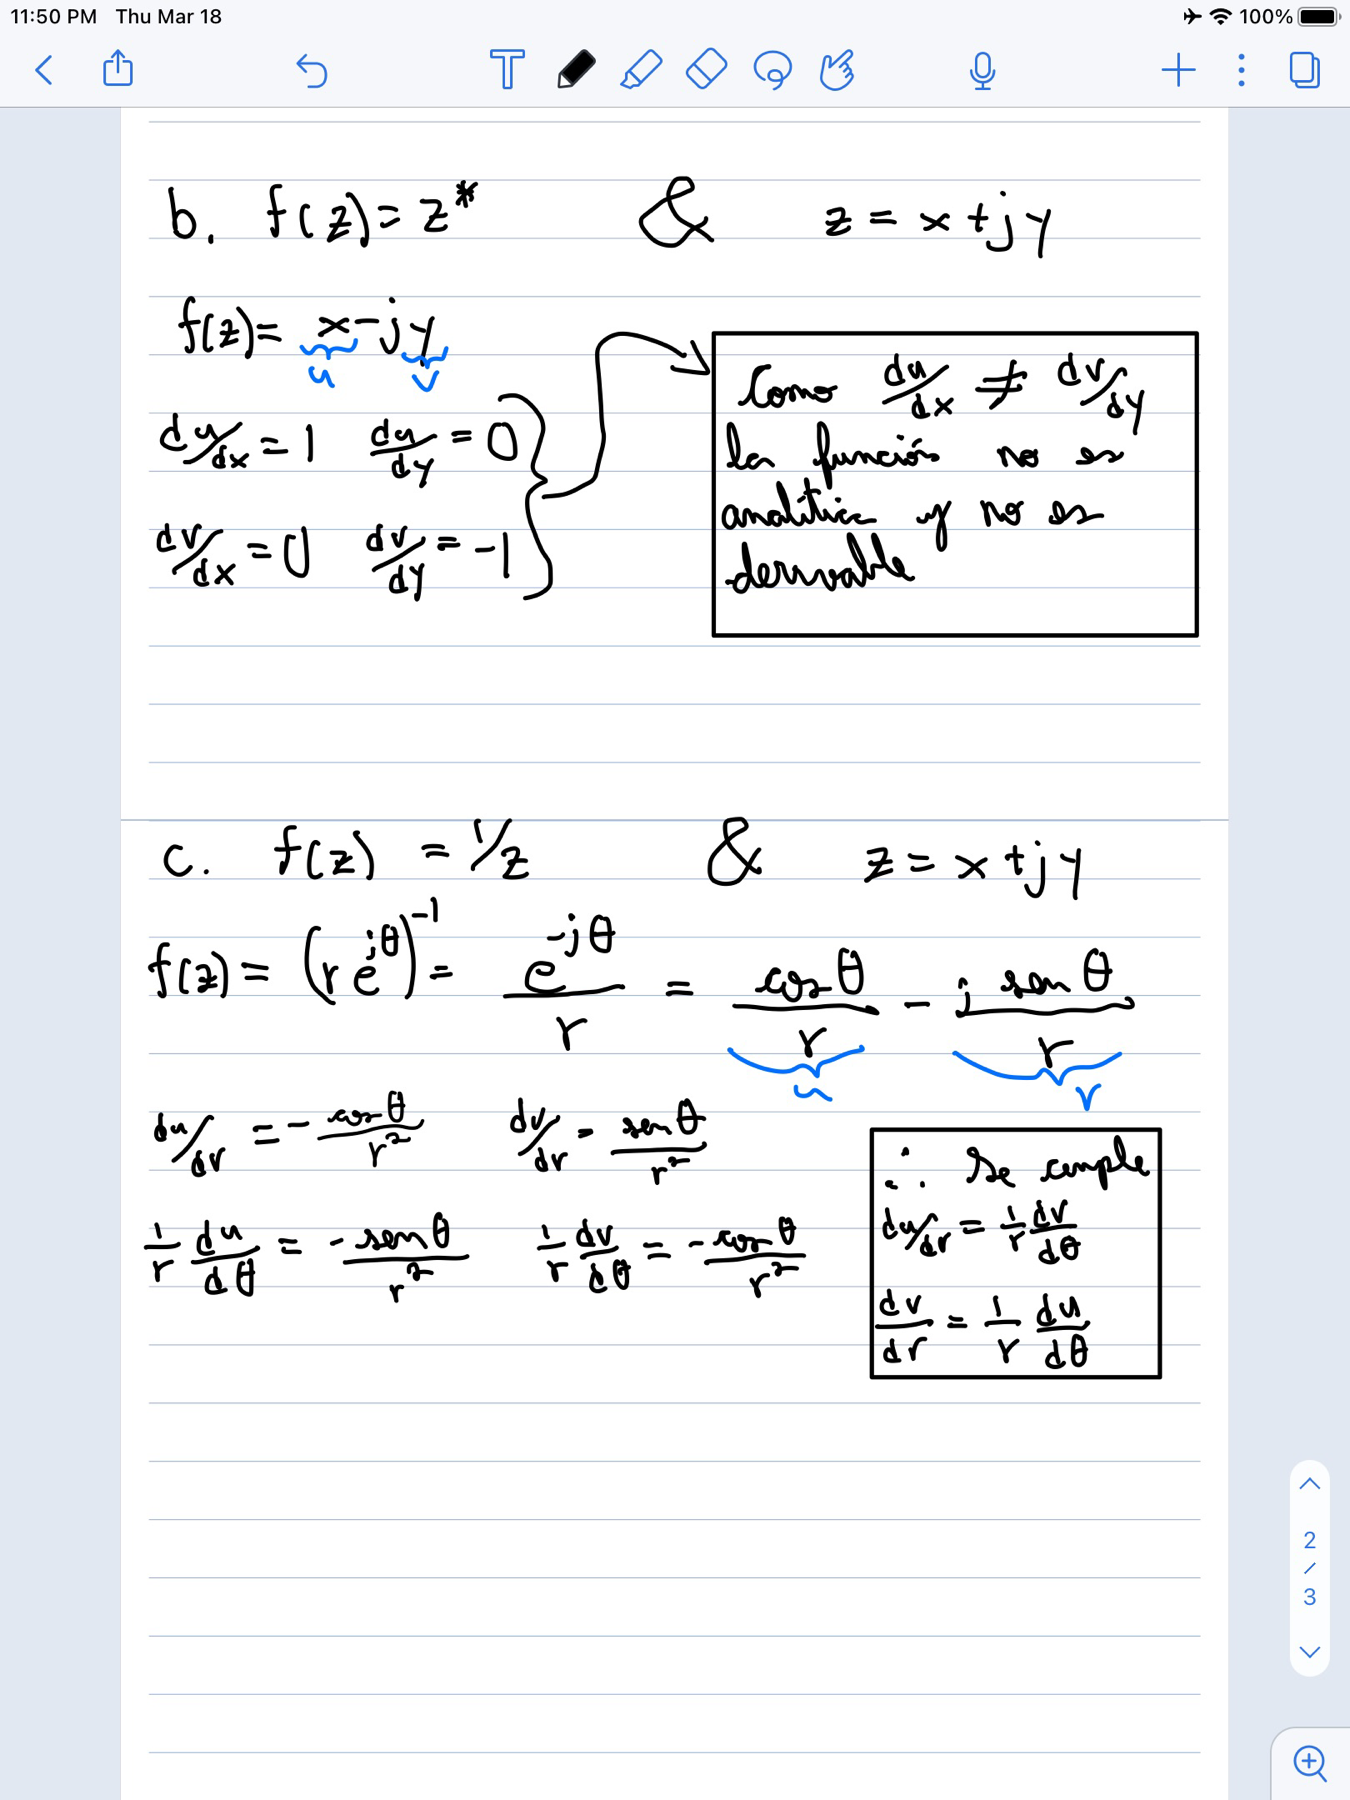 11:50 PM Thu Mar 18 100%
T
b. f(z) = z* & z = x + jy
f(z) = x - jy
u v
du/dx = 1 du/dy = 0
dv/dx = 0 dv/dy = -1
Como du/dx ≠ dv/dy
la función no es
analítica y no es
derivable
c. f(z) = 1/z & z = x + jy
f(z) = (r e^jθ)^-1 = e^-jθ/r = cos θ/r - j sen θ/r
u v
du/dr = - cos θ/r² dv/dr = sen θ/r²
1/r du/dθ = - sen θ/r² 1/r dv/dθ = - cos θ/r²
∴ Se cumple
du/dr = 1/r dv/dθ
dv/dr = 1/r du/dθ
2
/
3